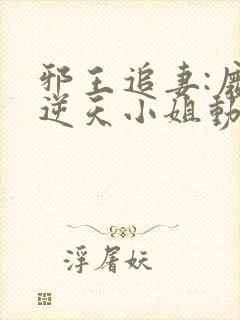 邪王追妻:
逆天小姐
浮屠妖